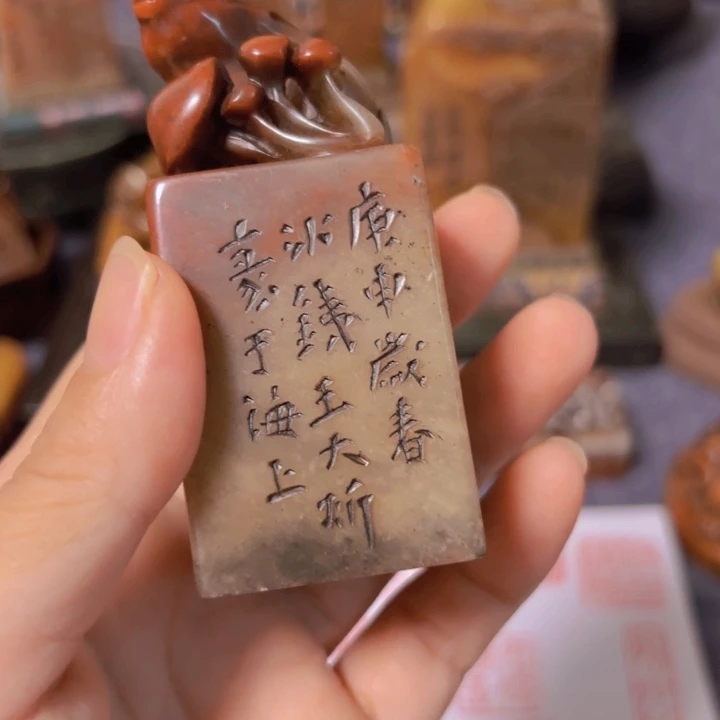 庚申歲春
冰鐵王大炘
篆于海上